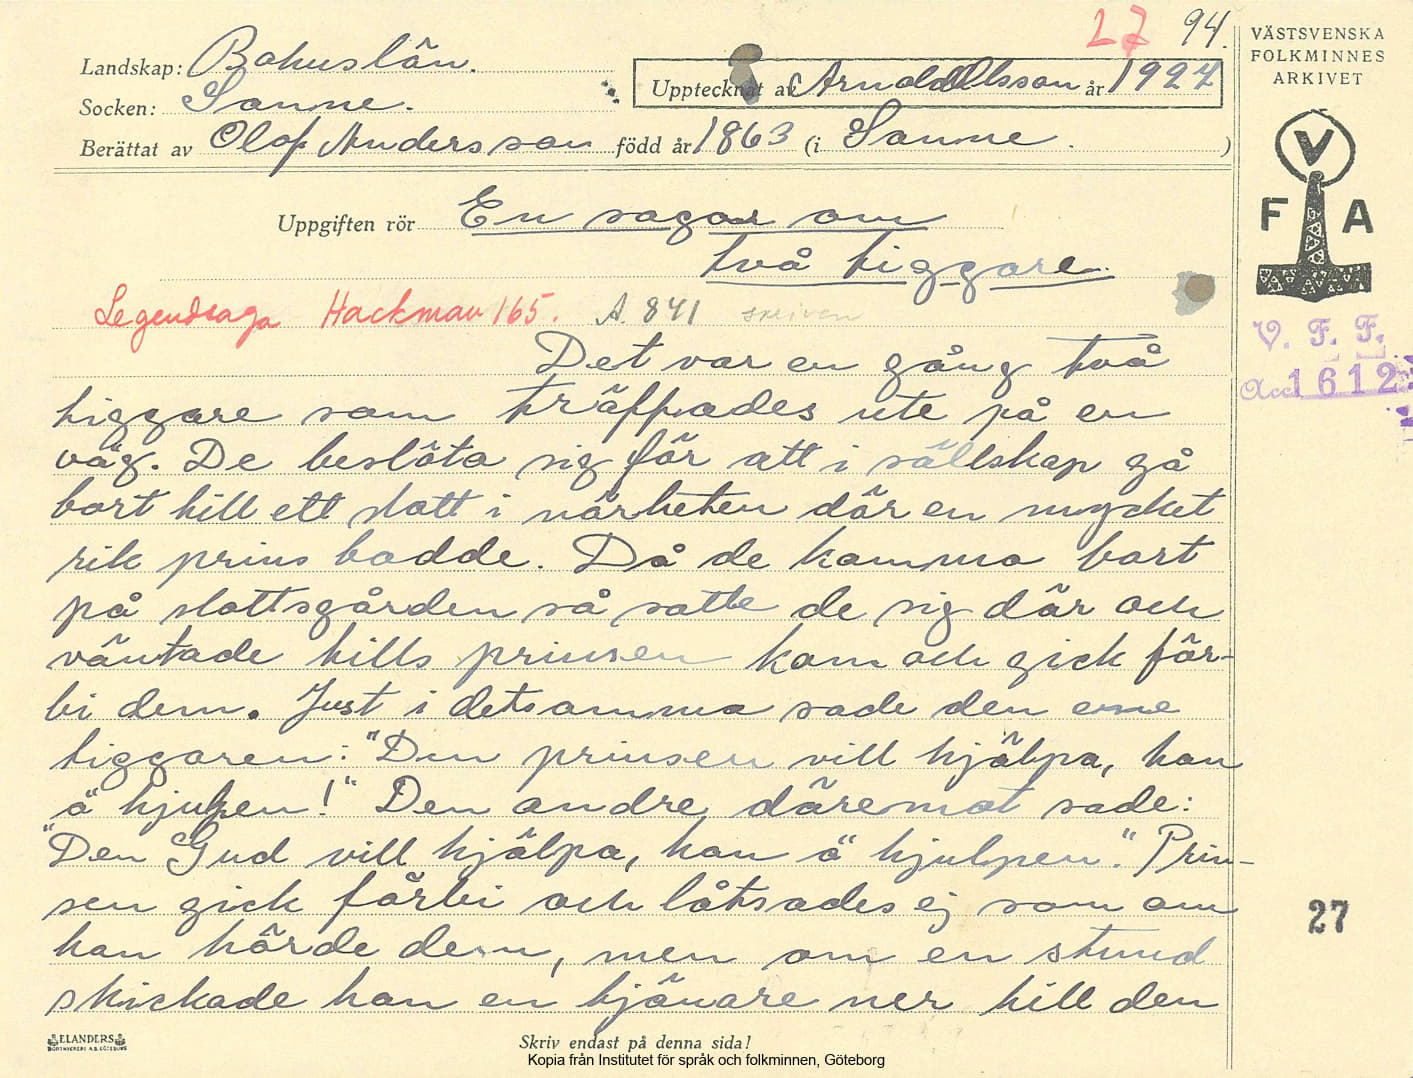 27 94.
Landskap: Bohuslän.
Upptecknat av Arnold Olsson år 1927
Socken: Sanne.
Berättat av Olof Andersson född år 1863 (i Sanne. )
Uppgiften rör En sagar om
två tiggare.
Legendsaga Hackman 165. A. 841 skriven
Det var en gång två
tiggare som träffades ute på en
väg. De beslöto sig för att i sällskap gå
bort till ett slott i närheten där en mycket
rik prins bodde. Då de kommo bort
på slottsgården så satte de sig där och
väntade tills prinsen kom och gick för-
bi dem. Just i detsamma sade den ene
tiggaren: "Den prinsen vill hjälpa, han
ä hjulpen!" Den andre däremot sade:
"Den Gud vill hjälpa, han ä hjulpen." Prin-
sen gick förbi och låtsades ej som om
han hörde dem, men om en stund
skickade han en tjänare ner till den
ELANDERS
BOKTRYCKERI A.B. GÖTEBORG
Skriv endast på denna sida!
Kopia från Institutet för språk och folkminnen, Göteborg
VÄSTSVENSKA
FOLKMINNES
ARKIVET
V
F A
V. F. F.
Acc 1612
27